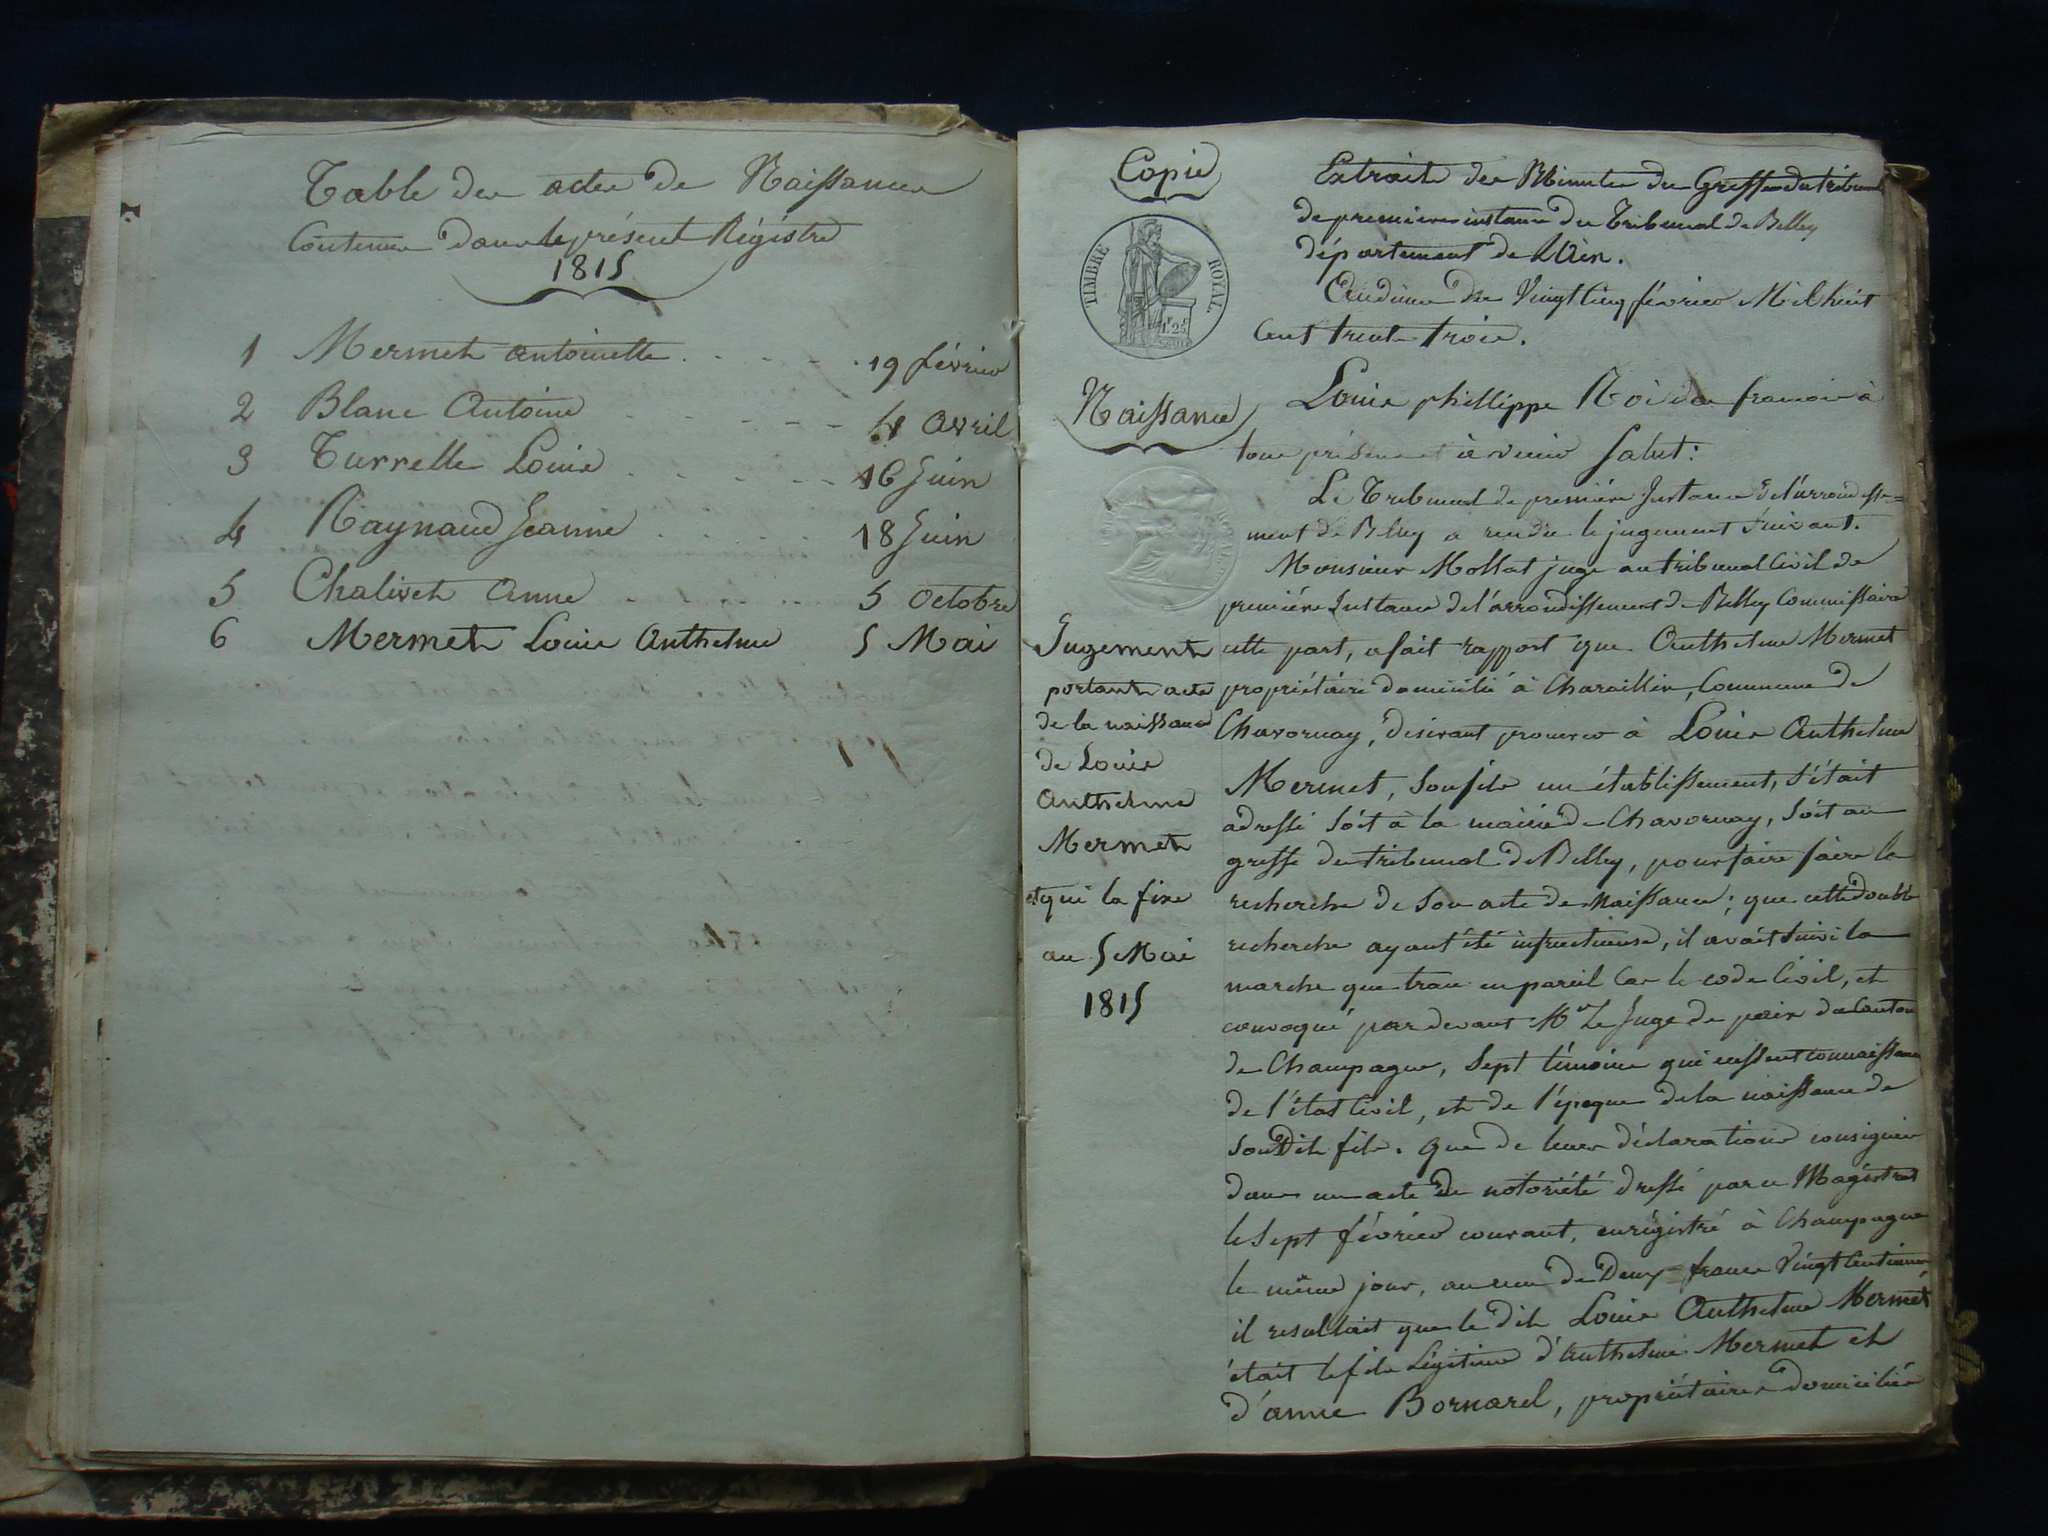 Table des actes de Naissances
Contenus dans le présent Régistre
1815
1 Mermet antoinette 19 février
2 Blanc Antoine 4 avril
3 Turrelle Louise 16 Juin
4 Raynaud Jeanne 18 Juin
5 Chalivet Anne 5 Octobre
6 Mermet Louis Anthelme 5 Mai
Copie
TIMBRE ROYAL
Naissance
Jugement
portant acte
de la naissance
de Louis
Anthelme
Mermet
et qui la fixe
au 5 Mai
1815
Extrait des Minutes du Greffe du tribunal
de premiere instance du Tribunal de Belley
département de l'Ain.
Audience du Vingt Cinq février Mil huit
Cent trente trois.
Louis phillippe Roi des francais à
tous présens et à venir Salut:
Le Tribunal de première Instance de l'arrondisse=
ment de Belley a rendu le jugement Suivant.
Monsieur Mollat juge au tribunal Civil de
première Instance de l'arrondissement de Belley Commissaire
cette part, a fait rapport que Anthelme Mermet
propriétaire domicilié à Charaillin, Commune de
Chavornay, désirant procurer à Louis Anthelme
Mermet, Son fils un établissement, S'était
adressé Soit à la mairie de Chavornay, Soit au
greffe du tribunal de Belley, pour faire faire la
recherche de Son acte de Naissance; que cette double
recherche ayant été infructueuse, il avait Suivi la
marche que trace en pareil Cas le code Civil, et
convoqué par devant Mr Le Juge de paix du Canton
de Champagne, Sept témoins qui eussent connaissance
de l'état Civil, et de l'époque de la naissance de
Son Dit fils. Que de leurs déclarations consignées
dans un acte de notoriété dressé par ce Magistrat
le Sept février courant, enrégistré à Champagne
le même jour, au reçu de Deux francs Vingt Centimes
il resultait que le dit Louis Anthelme Mermet
était le fils Légitime d'Anthelme Mermet et
d'anne Bornarel, propriétaires domiciliés